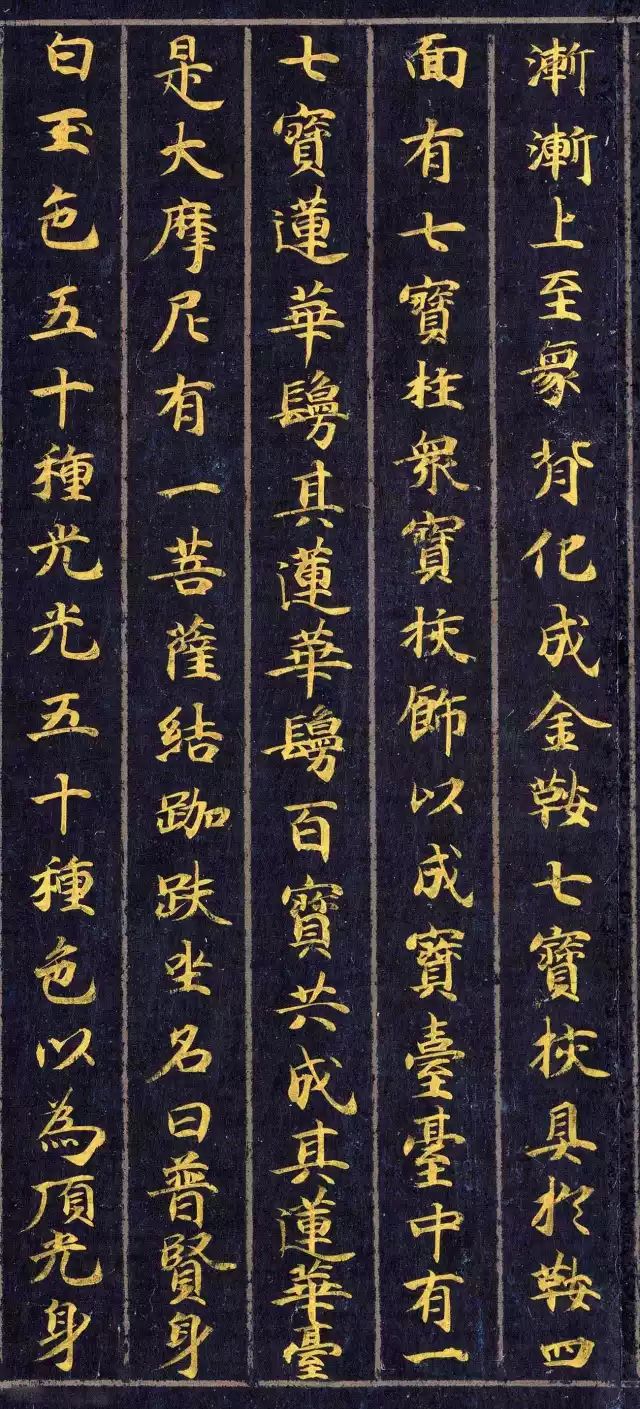 漸漸上至象背化成金鞍七寶挍具於鞍四
面有七寶柱衆寶挍飾以成寶臺臺中有一
七寶蓮華鬘其蓮華鬘百寶共成其蓮華臺
是大摩尼有一菩薩結跏趺坐名曰普賢身
白玉色五十種光光五十種色以為項光身